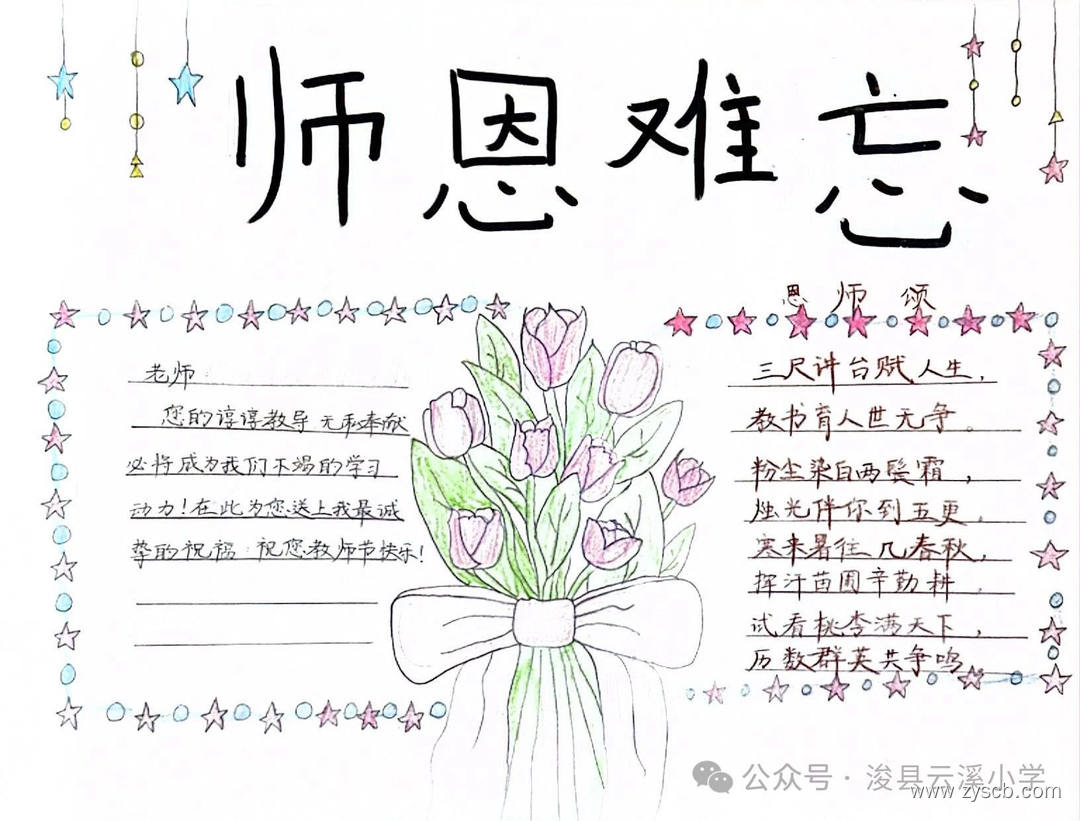 师恩难忘
恩师颂
老师
您的谆谆教导 无私奉献
必将成为我们不竭的学习
动力!在此为您送上我最诚
挚的祝福:祝您教师节快乐!
三尺讲台赋人生,
教书育人世无争。
粉尘染白两鬓霜,
烛光伴你到五更。
寒来暑往几春秋,
挥汗苗圃辛勤耕
试看桃李满天下,
历数群英共争鸣。
公众号·浚县云溪小学
www.zyscb.com